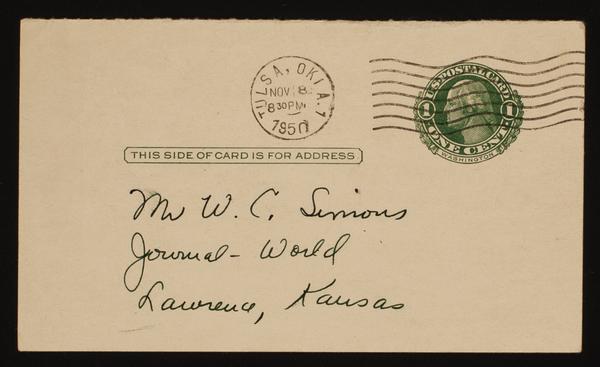 TULSA, OKLA. 1
NOV 8
8 30 PM
1950
U.S. POSTAL CARD
1 1
ONE CENT
WASHINGTON
THIS SIDE OF CARD IS FOR ADDRESS
Mr W. C. Simons
Journal-World
Lawrence, Kansas